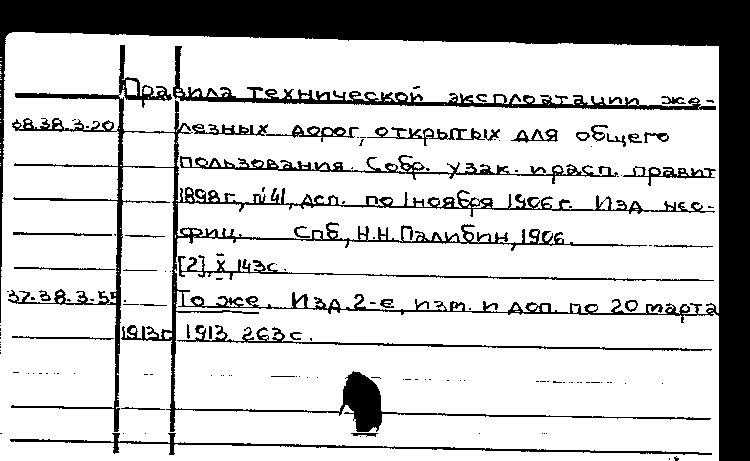 Правила технической эксплоатации же-
38.38.3.20 лезных дорог, открытых для общего
пользования. Собр. узак. и расп. правит
1898 г., № 41, доп. по 1 ноября 1906 г. Изд нео-
фиц. Спб., Н.Н. Палибин, 1906.
[2], X, 143 с.
37.38.3.55 То же. Изд. 2-е, изм. и доп. по 20 марта
1913 г 1913. 263 с.